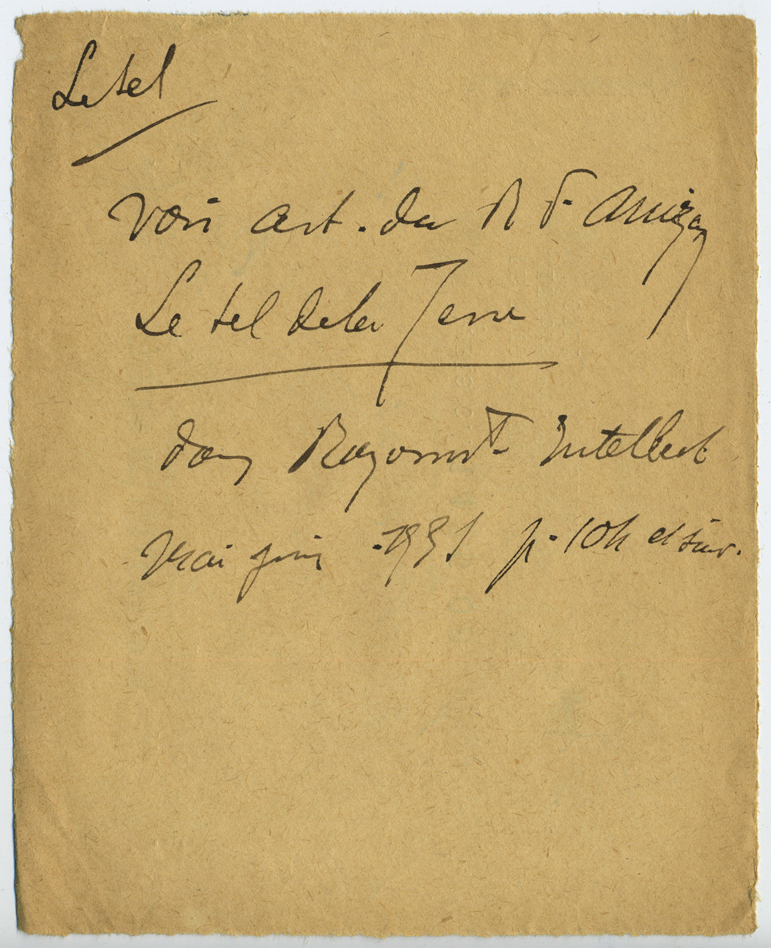 Le sel
voir art. du R P. Amizan
Le sel de la Terre
dans Rayonnt Intellect
mai juin 1931 p. 104 et suiv.